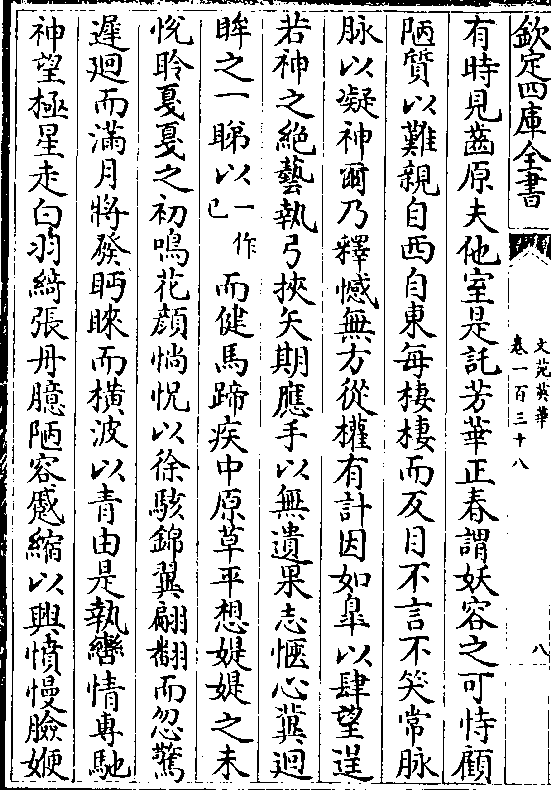 欽定四庫全書
文苑英華
卷一百三十八
八
有時見齒原夫他室是託芳華正春謂妖容之可恃顧
陋質以難親自西自東每棲棲而反目不言不笑常脉
脉以凝神爾乃釋憾無方從權有計因如皐以肆望逞
若神之絶藝執弓挾矢期應手以無遺果志愜心冀迴
眸之一睇以一作已而健馬蹄疾中原草平想媞媞之未
悅聆戛戛之初鳴花顔惝怳以徐駭錦翼翩翻而忽驚
遲廻而滿月將發眄睞而橫波以青由是執轡情專馳
神望極星走白羽綺張丹臆陋容蹙縮以興憤慢臉㛹